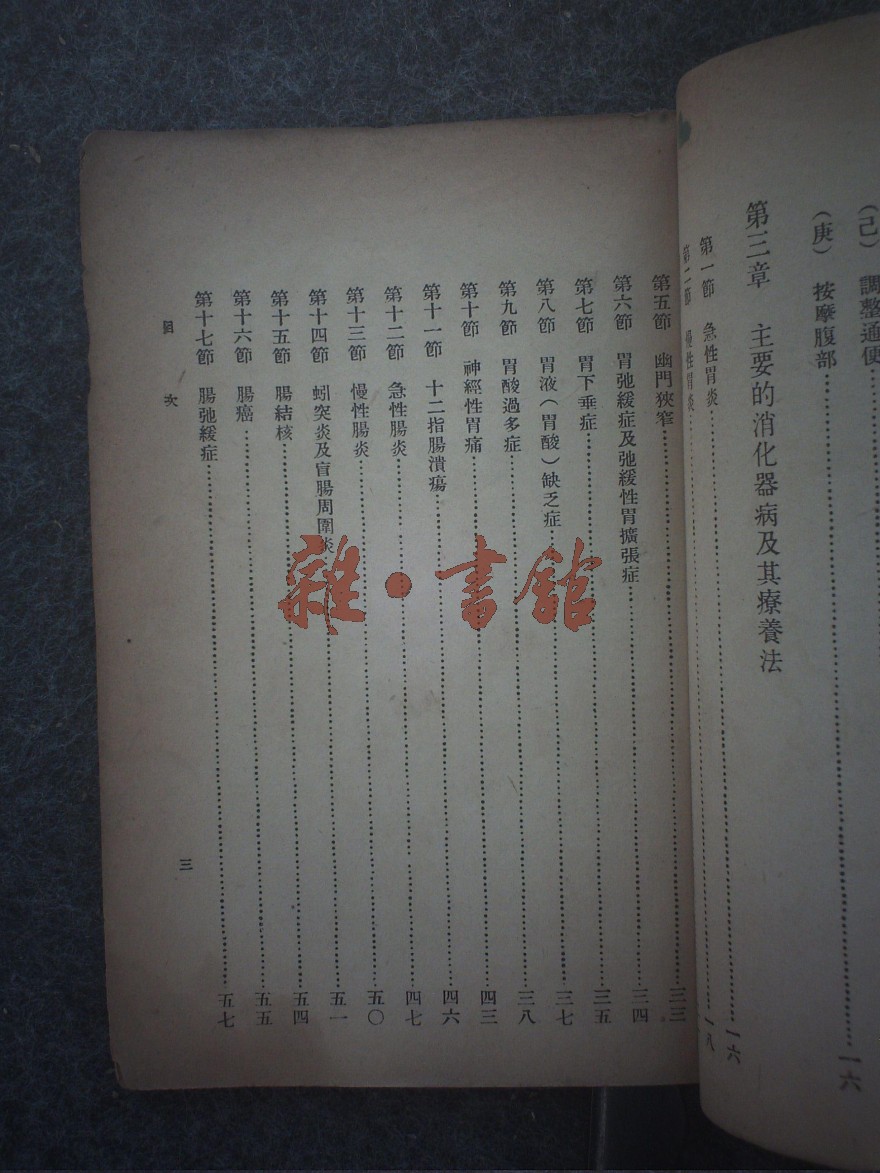 (己) 調整通便
(庚) 按摩腹部……一六
第三章 主要的消化器病及其療養法
第一節 急性胃炎……一六
第二節 慢性胃炎……一八
第五節 幽門狹窄……三三
第六節 胃弛緩症及弛緩性胃擴張症……三四
第七節 胃下垂症……三五
第八節 胃液(胃酸)缺乏症……三七
第九節 胃酸過多症……三八
第十節 神經性胃痛……四三
第十一節 十二指腸潰瘍……四六
第十二節 急性腸炎……四七
第十三節 慢性腸炎……五〇
第十四節 蚓突炎及盲腸周圍炎……五一
第十五節 腸結核……五四
第十六節 腸癌……五五
第十七節 腸弛緩症……五七
目次
三
雜·書館